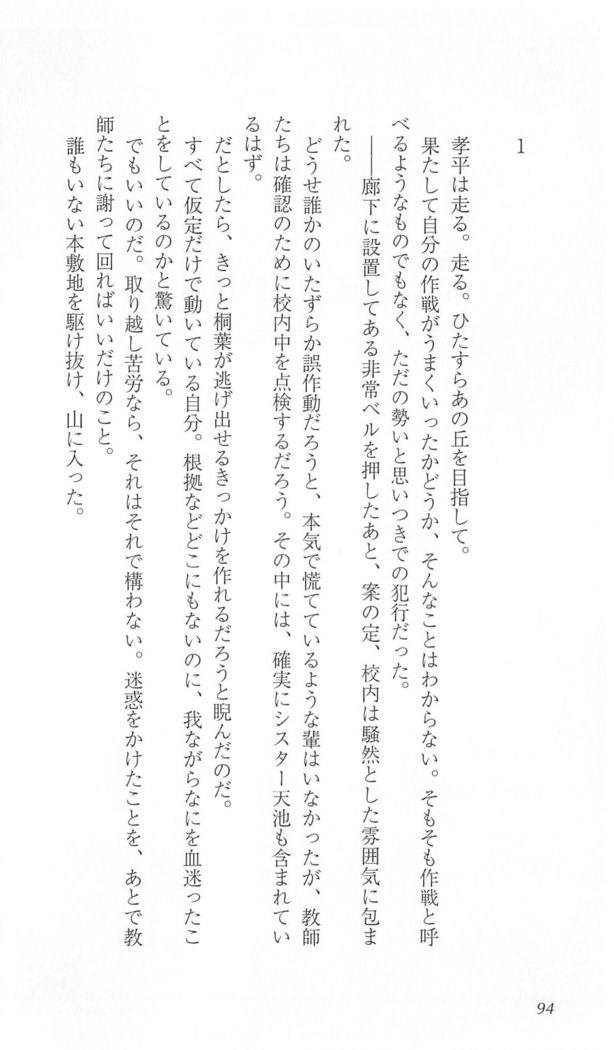 1
孝平は走る。走る。ひたすらあの丘を目指して。
果たして自分の作戦がうまくいったかどうか、そんなことはわからない。そもそも作戦と呼
べるようなものでもなく、ただの勢いと思いつきでの犯行だった。
――廊下に設置してある非常ベルを押したあと、案の定、校内は騒然とした雰囲気に包ま
れた。
どうせ誰かのいたずらか誤作動だろうと、本気で慌てているような輩はいなかったが、教師
たちは確認のために校内中を点検するだろう。その中には、確実にシスター天池も含まれてい
るはず。
だとしたら、きっと桐葉が逃げ出せるきっかけを作れるだろうと睨んだのだ。
すべて仮定だけで動いている自分。根拠などどこにもないのに、我ながらなにを血迷ったこ
とをしているのかと驚いている。
でもいいのだ。取り越し苦労なら、それはそれで構わない。迷惑をかけたことを、あとで教
師たちに謝って回ればいいだけのこと。
誰もいない本敷地を駆け抜け、山に入った。
94